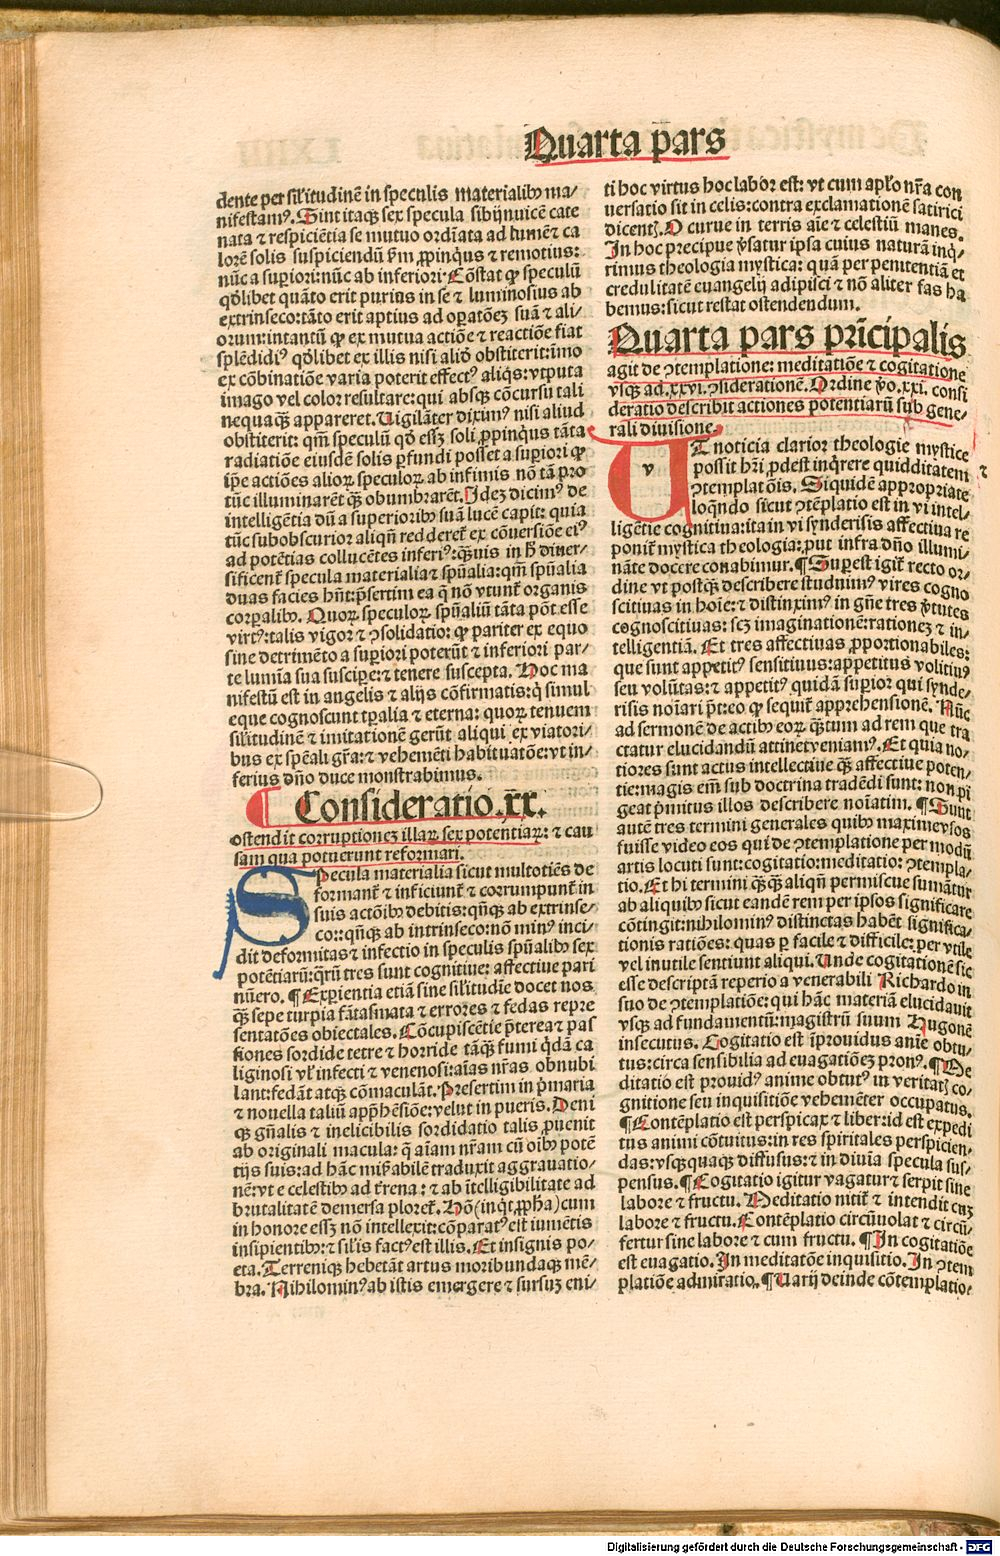 Quarta p̄ars
dente per sil'itudinē in speculis materialibꝰ ma/
nifestamꝰ. Sint itaqꝫ sex specula sibijnuicē cate
nata ⁊ respiciētia se mutuo ordīata ad lumē ⁊ ca
lorē solis suspiciendū ẜm ꝓpinquꝰ ⁊ remotius:
nūc a suꝑiori: nūc ab inferiori. Cōstat ꝙ speculū
qḋlibet quāto erit purius in se ⁊ luminosius ab
extrinseco: tāto erit aptius ad oꝑatōeꝫ suā ⁊ ali/
orum: intantū ꝙ ex mutua actiōe ⁊ reactiōe fiat
splēdidiꝰ qḋlibet ex illis nisi aliḋ obstiterit: imo
ex cōbinatiōe varia poterit effectꝰ aliqͥs: vtputa
imago vel color resultare: qui absqꝫ cōcursu tali
nequaqꝫ appareret. Uigilāter diximꝰ nisi aliud
obstiterit: qm̄ speculū qḋ essꝫ soli ꝓpinqͥus tāta
radiatiōe eiusdē solis ꝑfundi posset a suꝑiori ꝙ
ip̄e actiōes alioꝝ speculoꝝ ab infimis nō tā pro
tūc illuminarēt qꝫ obumbrarēt. Ideꝫ dicimꝰ de
intelligētia dū a superioribꝰ suā lucē capit: quia
tūc subobscurior aliqn̄ redderet ex cōuersiōe eiꝰ
ad potētias collucētes inferiꝰ: qꝫuis in h̄ diuer-
sificent specula materialia ⁊ sp̄ualia: qm̄ sp̄ualia
duas facies hn̄t: p̄sertim ea q̄ nō vtunt̄ organis
corꝑalibꝰ. Quoꝝ speculoꝝ sp̄ualiū tāta pōt esse
virtꝰ: talis vigor ⁊ ꝯsolidatio: ꝙ pariter ex equo
sine detrimēto a suꝑiori poterūt ⁊ inferiori par/
te lumīa sua suscipeꝛe: ⁊ tenere suscepta. Hoc ma
nifestū est in angelis ⁊ alijs cōfirmatis: q̄ simul
eque cognoscunt tꝑalia ⁊ eterna: quoꝝ tenuem
sil'itudinē ⁊ imitationē gerūt aliqui ex viatori/
bus ex spēali gr̄a: ⁊ vehemēti habituatōe: vt in/
ferius dn̄o duce monstrabimus.
¶ Consideratio.xx.
ostendit corruptioneꝫ illaꝝ sex potentiaꝝ: ⁊ cau
sam qua potuerunt reformari.
SPecula materialia sicut multotiēs de
formant̄ ⁊ inficiunt̄ ⁊ corrumpunt̄ in
suis actōibꝰ debitis: qn̄qꝫ ab extrinse/
co: qn̄qꝫ ab intrinseco: nō minꝰ inci/
dit deformitas ⁊ infectio in speculis sp̄ualibꝰ sex
potētiarū: qͣrū tres sunt cognitiue: affectiue pari
nūero. ¶ Exꝑientia etiā sine sil'itudīe docet nos
qꝫ sepe turpia fātasmata ⁊ errores ⁊ fedas repre
sentatōes obiectales. Cōcupiscētie p̄terea ⁊ pas
siones sordide tetre ⁊ horride tāqꝫ fumi qͥdā ca
liginosi vl' infecti ⁊ venenosi: aīas nr̄as obnubi
lant: fedāt atqꝫ cōmaculāt. Presertim in pͥmaria
⁊ nouella taliū app̄hēsiōe: velut in pueris. Deni
qꝫ gn̄alis ⁊ inelicibilis sordidatio talis ꝓuenit
ab originali macula: q̄ aīam nr̄am cū oībꝰ potē
tijs suis: ad hāc misꝰabilē traduxit aggrauatio/
nē: vt e celestibꝰ ad tr̄rena: ⁊ ab ītelligibilitate ad
brutalitatē demersa ploret. Hō (inqͥt ꝓph̄a) cum
in honore essꝫ nō intellexit: cōparatꝰ est iumētis
insipientibꝰ: ⁊ sil'is factꝰ est illis. Et insignis po/
eta. Terreniqꝫ hebetāt artus moribundaqꝫ mē/
bra. Nihilominꝰ ab istis emergere ⁊ sursuꝫ eni/
ti hoc virtus hoc labor est: vt cum apl'o nr̄a con
uersatio sit in celis: contra exclamationē satirici
dicentꝭ. O curue in terris aīe ⁊ celestiū inanes.
In hoc precipue v̓satur ipsa cuius naturā inq̄/
rimus theologia mystica: quā per penitentiā et
credulitatē euangelij adipisci ⁊ nō aliter fas ha
bemus: sicut restat ostendendum.
Quarta pars prīcipalis
agit de ꝯtemplatione: meditatiōe ⁊ cogitatione
vsqꝫ ad.xxvi. ꝯsiderationē. Ordine v̓o.xxi. consi
deratio describit actiones potentiarū sub gene/
rali diuisione.
v
UT noticia clarior theologie mystice
possit hr̄i ꝓdest inqͥrere quidditatem ⁊
ꝯtemplatōis. Siquidē appropriate
loqͣndo sicut ꝯtēplatio est in vi intel/
ligētie cognitiua: ita in vi synderisis affectiua re
ponit̄ mystica theologia: ꝓut infra dn̄o illumi/
nāte docere conabimur. ¶ Suꝑest igit̄ recto or/
dine vt postqꝫ describere studuimꝰ vires cogno
scitiuas in hoīe: ⁊ distinximꝰ in gn̄e tres v̓tutes
cognoscitiuas: scꝫ imaginationē: rationeꝫ ⁊ in/
telligentiā. Et tres affectiuas ꝓportionabiles:
que sunt appetitꝰ sensitiuus: appetitus volitiuꝰ
seu volūtas: ⁊ appetitꝰ quidā suꝑior qui synde/
risis noīari pōt: eo ꝙ sequit̄ apprehensionē. Nūc
ad sermonē de actibꝰ eoꝝ qꝫtum ad rem que tra
ctatur elucidandū attinet veniamꝰ. Et quia no/
tiores sunt actus intellectiue qꝫ affectiue poten/
tie: magis em̄ sub doctrina tradēdi sunt: non pi
geat pͥmitus illos describere noīatim. ¶ Sunt
autē tres termini generales quibꝰ maxime vsos
fuisse video eos qui de ꝯtemplatione per modū
artis locuti sunt: cogitatio: meditatio: ꝯtempla/
tio. Et hi termini qꝫqꝫ aliqn̄ permiscue sumātur
ab aliquibꝰ sicut eandē rem per ipsos significare
cōtingit: nihilominꝰ distinctas habēt significa/
tionis ratiōes: quas ꝑ facile ⁊ difficile: per vtile
vel inutile sentiunt aliqui. Unde cogitationē sic
esse descriptā reperio a venerabili Richardo in
suo de ꝯtemplatiōe: qui hāc materiā elucidauit
vsqꝫ ad fundamentū: magistrū suum Hugonē
insecutus. Cogitatio est īprouidus anīe obtu/
tus: circa sensibilia ad euagatiōeꝫ pronꝰ. ¶ Me
ditatio est prouidꝰ anime obtutꝰ in veritatꝭ co/
gnitione seu inquisitiōe vehemēter occupatus.
¶ Contēplatio est perspicax ⁊ liber: id est expedi
tus animi cōtuitus: in res spiritales perspicien/
das: vsqꝫquaqꝫ diffusus: ⁊ in diuīa specula sus/
pensus. ¶ Cogitatio igitur vagatur ⁊ serpit sine
labore ⁊ fructu. Meditatio nitit̄ ⁊ intendit cuꝫ
labore ⁊ fructu. Contēplatio circūuolat ⁊ circū/
fertur sine labore ⁊ cum fructu. ¶ In cogitatiōe
est euagatio. In meditatōe inquisitio. In ꝯtem
platiōe admiratio. ¶ Uarij deinde cōtemplatio/
Digitalisierung gefördert durch die Deutsche Forschungsgemeinschaft - DFG